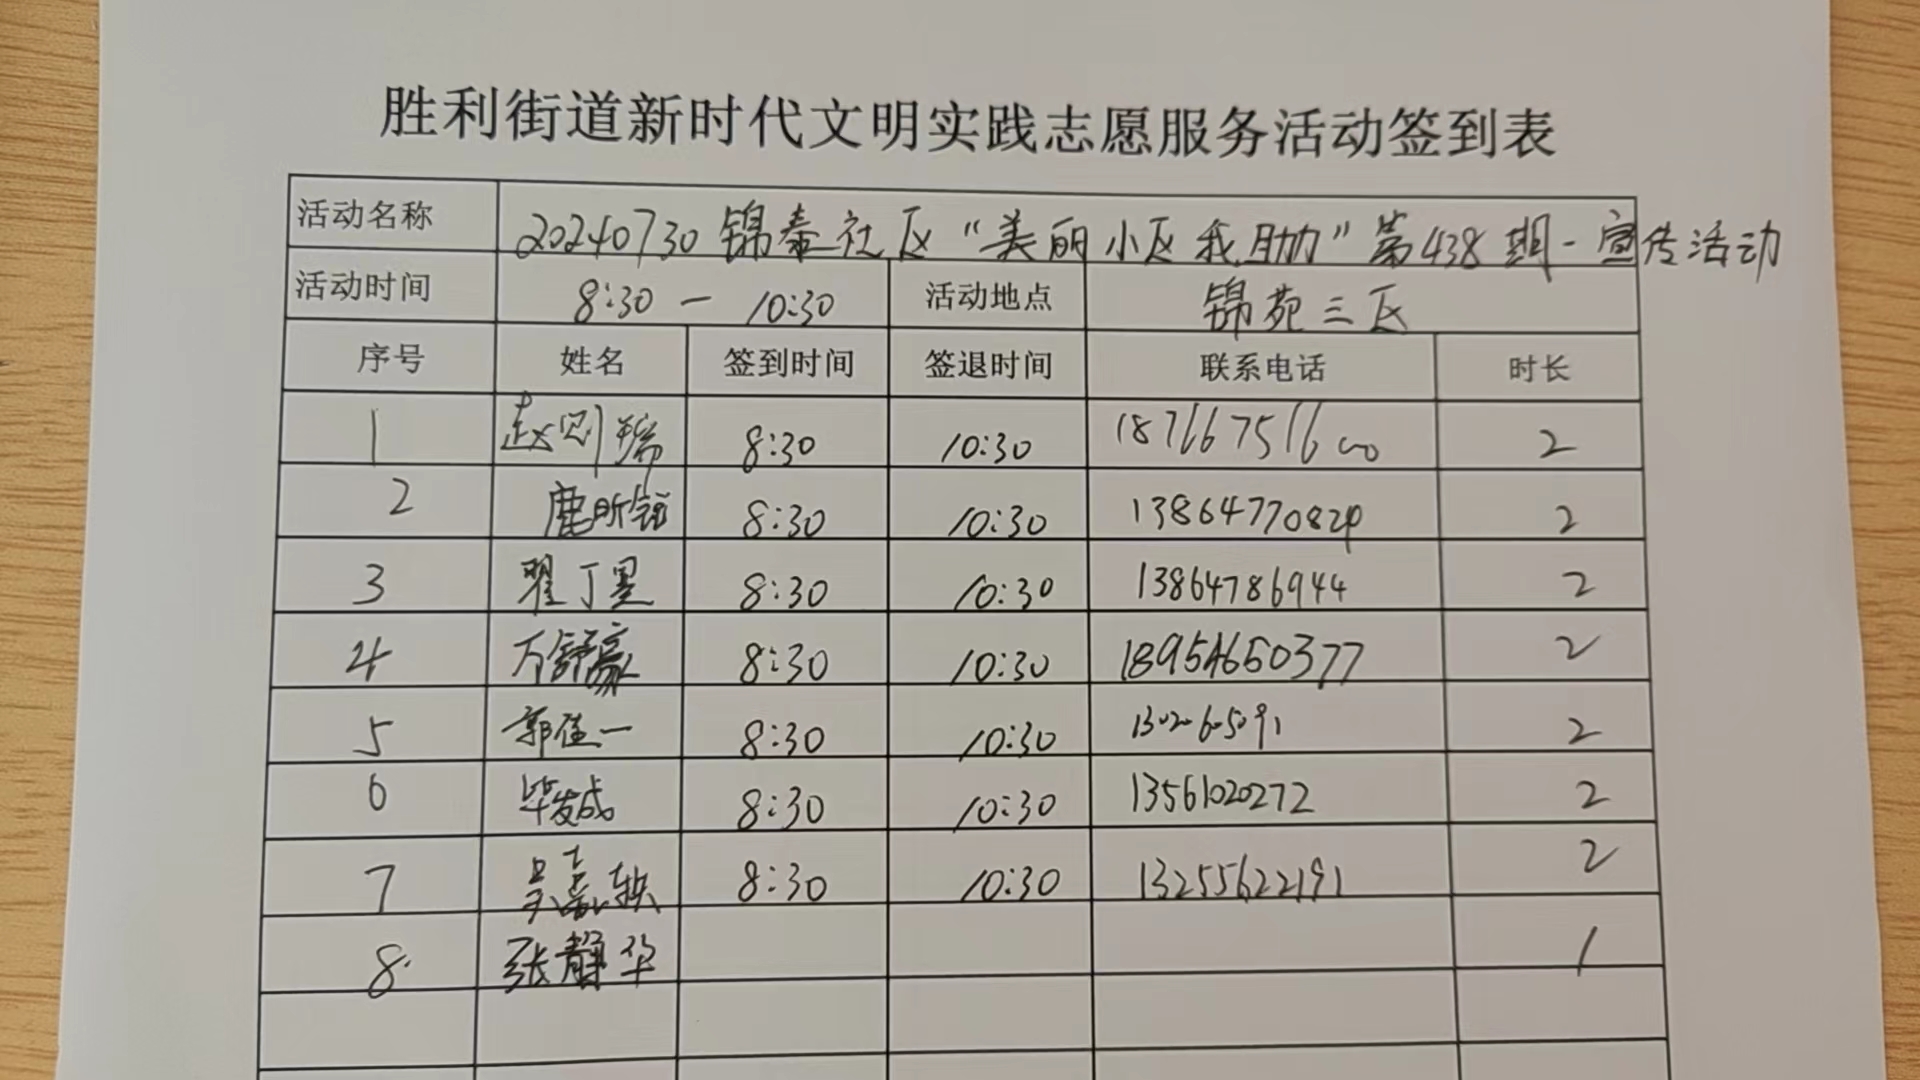 胜利街道新时代文明实践志愿服务活动签到表
活动名称 20240730锦泰社区“美丽小区我助力”第438期-宣传活动
活动时间 8:30 — 10:30 活动地点 锦苑三区
序号 姓名 签到时间 签退时间 联系电话 时长
1 赵则瑞 8:30 10:30 2
2 8:30 10:30 13864770824 2
3 翟丁里 8:30 10:30 13864786944 2
4 万舒豪 8:30 10:30 18954650377 2
5 郭佳一 8:30 10:30 2
6 毕发成 8:30 10:30 13561020272 2
7 吴嘉轶 8:30 10:30 13255622191 2
8. 张静华 1